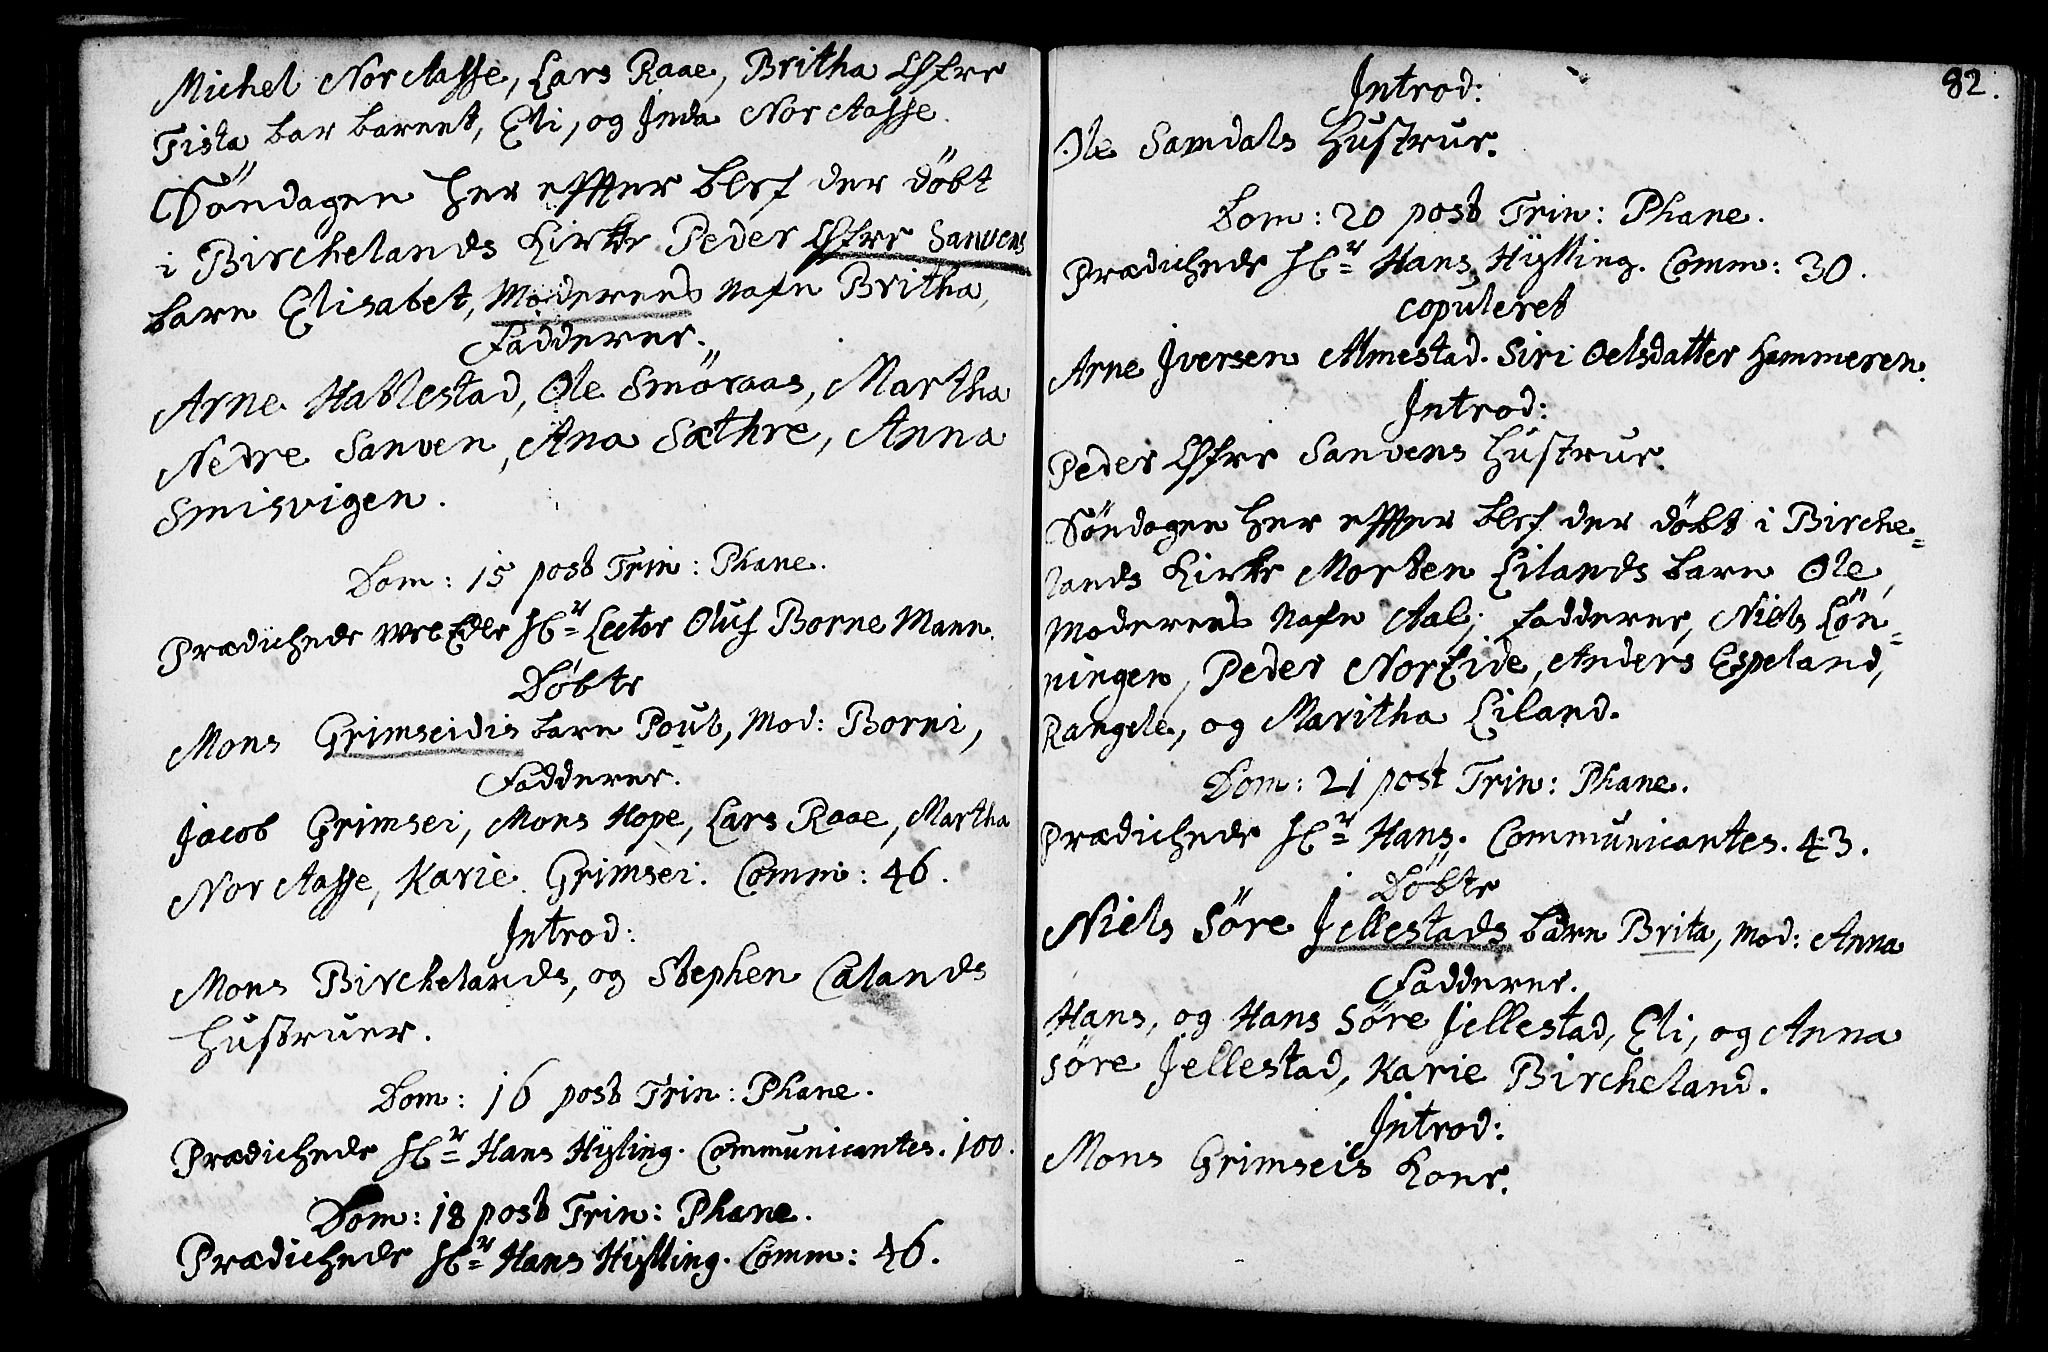 Michel Nordaasse, Lars Raae, Britha Øfre
Tista bar barnet, Eli, og Inda Nordaasse.
Söndagen her effter blef der döbt
i Birchelands Kirke Peder Øfre Sanvens
barn Elisabet, Moderens Nafn Britha,
Fadderer.
Arne Hatlestad, Ole Smöraas, Martha
Nedre Sanven, Ana Sæthre, Anna
Smisvigen.
Dom: 15 post Trin: Phane.
Prædichede Hr= Lector Oluf Borne Mann.
Döbte
Mons Grimseidis barn Poul, Mod: Borni,
Fadderer.
Jacob Grimsei, Mons Hope, Lars Raae, Martha
Nordaasse, Karie Grimsei. Comm: 46.
Introd:
Mons Birchelands, og Stephen Calands
Hustruer.
Dom: 16 post Trin: Phane.
Prædichede Hr= Hans Hÿsing. Communicantes. 100.
Dom: 18 post Trin: Phane.
Prædichede Hr= Hans Hÿssing. Comm: 46.
82.
Introd:
Ole Samdals Hustrue.
Dom: 20 post Trin: Phane.
Prædichede Hr= Hans Hÿssing. Comm: 30.
copuleret
Arne Iversen Almestad. Siri Oelsdatter Hammeren.
Introd:
Peder Øfre Sanvens Hustrue.
Söndagen her effter blef der döbt i Birche=
lands Kirke Morten Lilands barn Ole,
Moderens Nafn Aal; Fadderer, Niels Lön=
ningen, Peder Norlide, Anders Espeland,
Rangele, og Maritha Liland.
Dom: 21 post Trin: Phane.
Prædichede Hr= Hans. Communicantes. 43.
Döbte
Niels Söre Jellestads barn Brita, Mod: Anna
Fadderer.
Hans, og Hans Söre Jellestad, Eli, og Anna
Söre Jellestad, Karie Bircheland.
Introd:
Mons Grimseis Kone.